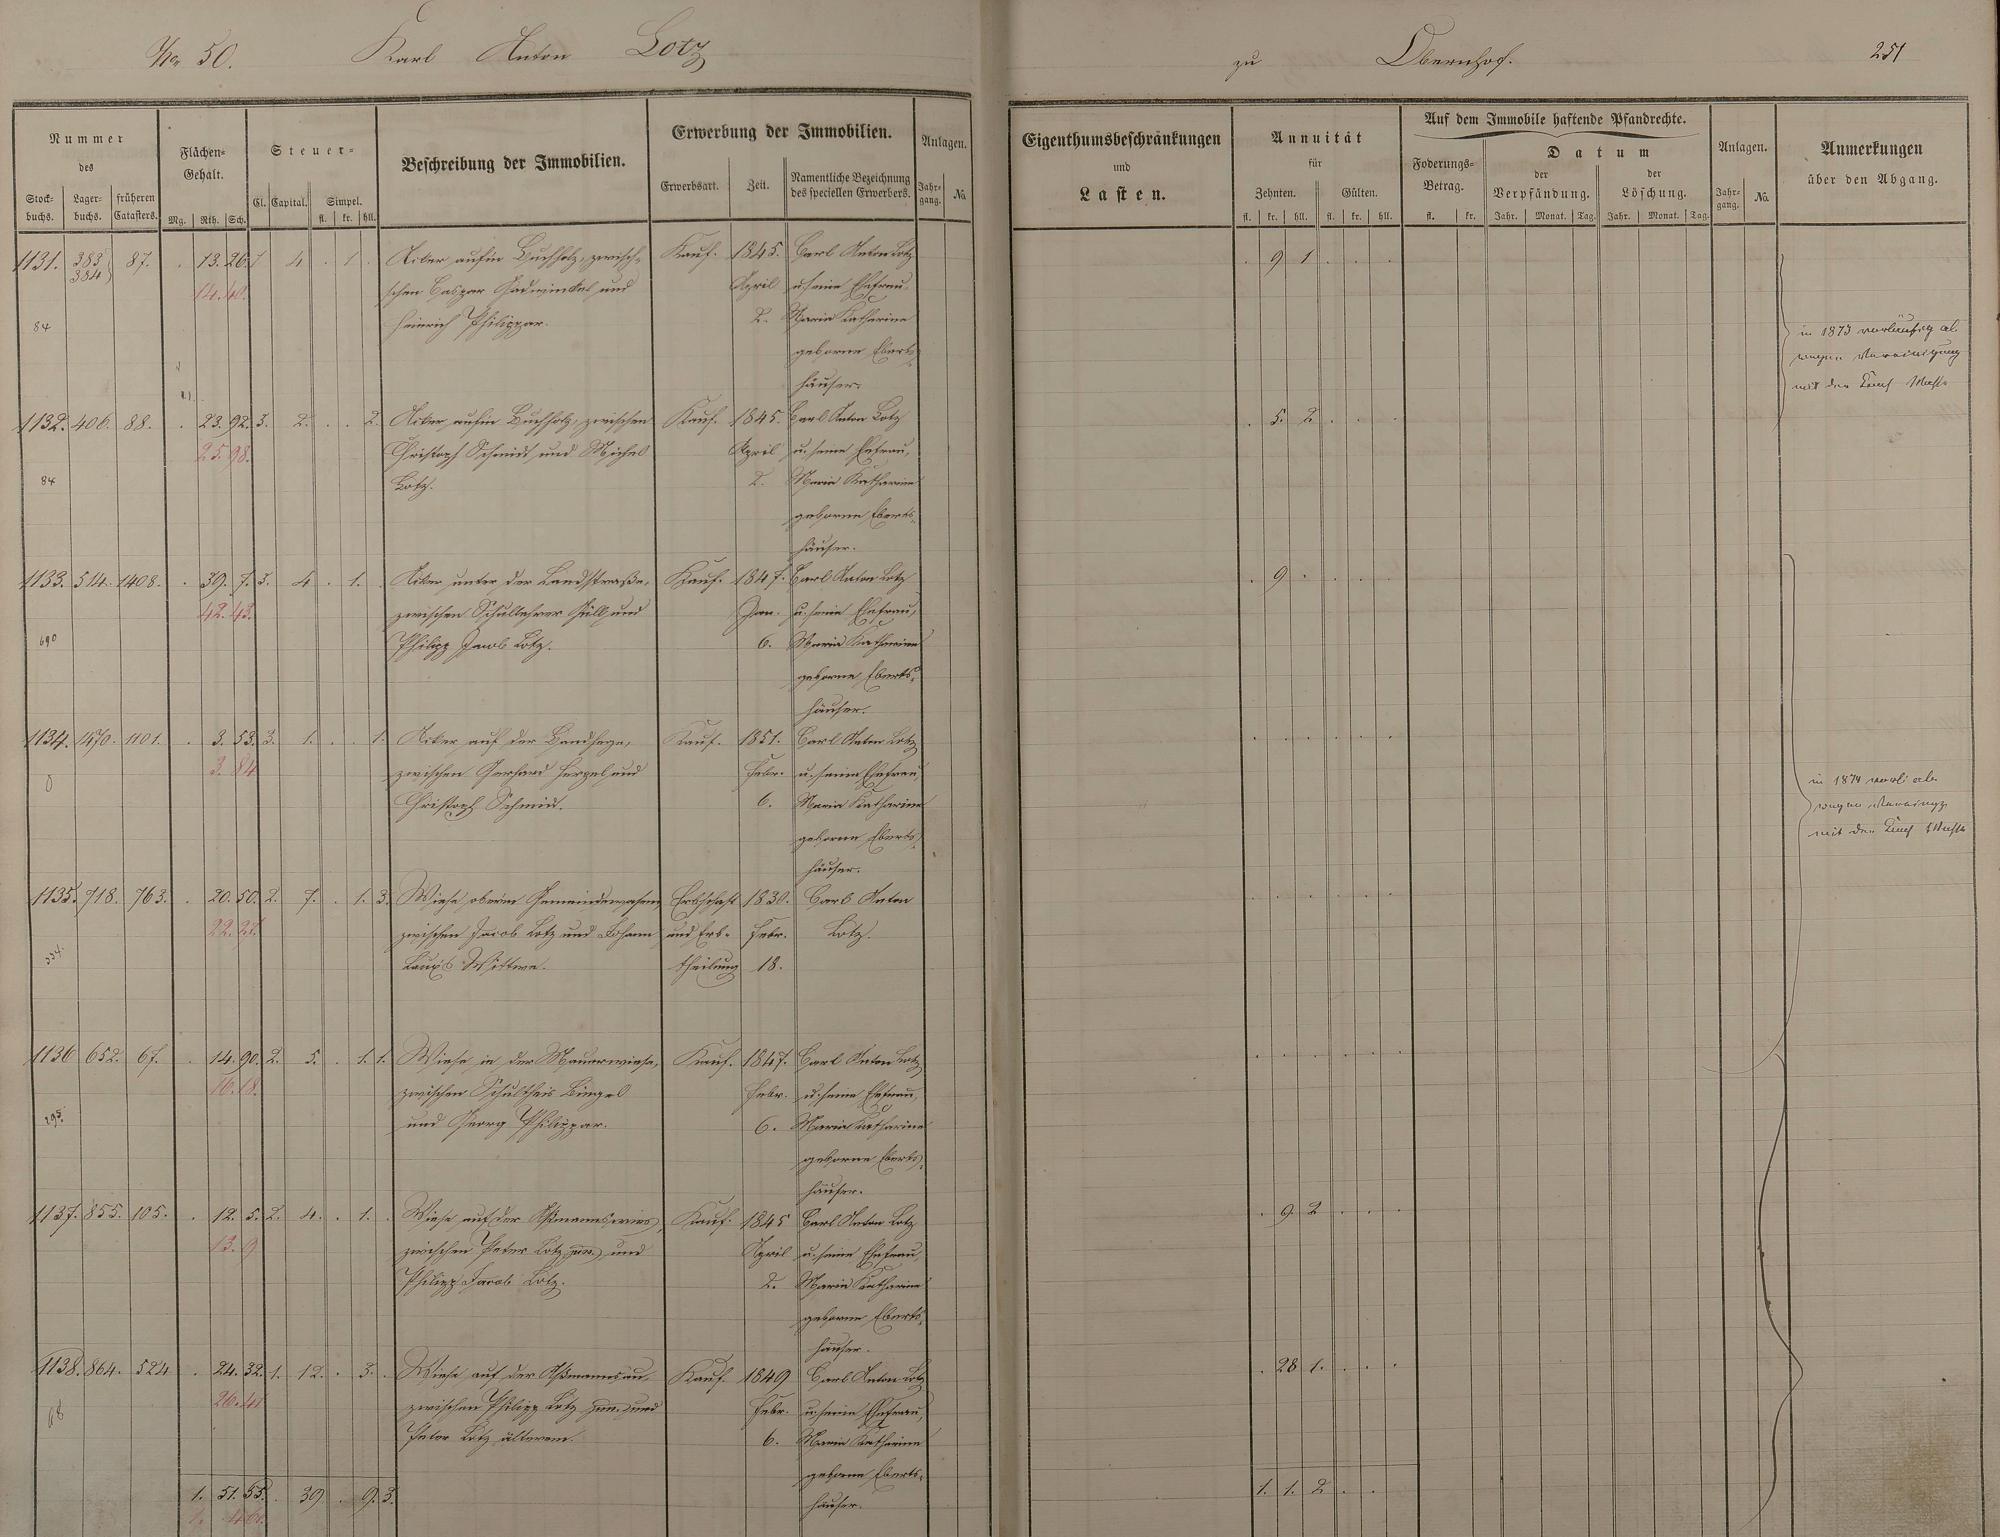 No. 50. Karl Anton Lotz
zu Obernhof. 251
Nummer
des
Stock-
buchs.
Lager-
buchs.
früheren
Catasters.
Flächen-
Gehalt.
Mg. Rth. Sch.
Steuer-
Cl. Capital. Simpel.
fl. kr. hll.
Beschreibung der Immobilien.
Erwerbung der Immobilien.
Erwerbsart. Zeit.
Namentliche Bezeichnung
des speciellen Erwerbers.
Anlagen.
Jahr-
gang.
No.
Eigenthumsbeschränkungen
und
Lasten.
Annuität
für
Zehnten. Gülten.
fl. kr. hll. fl. kr. hll.
Auf dem Immobile haftende Pfandrechte.
Foderungs-
Betrag.
fl. kr.
Datum
der
Verpfändung.
der
Löschung.
Jahr. Monat. Tag. Jahr. Monat. Tag.
Anlagen.
Jahr-
gang.
No.
Anmerkungen
über den Abgang.
1131. 383 87. . 13. 26. 4 . 1 . Acker aufm Buchholz, zwisch- Kauf. 1845. Carl Anton Lotz . 9 1 . . .
384
schen Caspar und April u. seine Ehefrau,
84 Heinrich Philippar. 2. Maria Katharine
geborne Eberts-
häuser.
in 1873 vorläufig ab
wegen Vereinigung
mit der
1132. 406. 88. . 23. 92. 3. 2. . . 2. Acker aufm Buchholz, zwischen Kauf. 1845. Carl Anton Lotz . 5. 2 . . .
25. 98. Christoph Schmidt und Michel April u. seine Ehefrau,
84 Lotz. 2. Maria Katharine
geborne Eberts-
häuser.
1133. 514. 1408. . 39. 7. 3. 4 . 1. . Acker unter der Landstraße, Kauf. 1847. Carl Anton Lotz . 9 . . . .
42. 43. zwischen Schullehrer und Jan. u. seine Ehefrau,
690 Philipp Jacob Lotz. 6. Maria Katharine
geborne Eberts-
häuser.
1134. 1470. 1101. . 3. 53. 3. 1. . . 1. Acker auf der Kauf. 1851. Carl Anton Lotz . . . . . .
3. 84 zwischen Gerhard und Febr. u. seine Ehefrau,
0 Christoph Schmidt. 6. Maria Katharine
geborne Eberts-
häuser.
in 1874 vorl. ab
wegen
mit der
1135. 718. 763. . 20. 50. 2. 7. . 1. 3. Wiese oberm Erbschaft 1830. Carl Anton . . . . . .
22. zwischen Jacob Lotz und Johann und Erb- Febr. Lotz.
334. Wittwe. theilung 18.
1136 652. 67. . 14. 90. 2. 5. . 1. 1. Wiese in der Mauerwiese, Kauf. 1847. Carl Anton Lotz . . . . . .
16. 18. zwischen Schultheis Bingel Febr. u. seine Ehefrau,
295. und Georg Philippar. 6. Maria Katharine
geborne Eberts-
häuser.
1137. 855. 105. . 12. 5. 2. 4. . 1. . Wiese auf der Kauf. 1845 Carl Anton Lotz . 9 2 . . .
13. 9 zwischen Peter Lotz jun. und April u. seine Ehefrau,
Philipp Jacob Lotz. 2. Maria Katharine
geborne Eberts-
häuser.
1138. 864. 524 . 24. 32. 1. 12. . 3. . Wiese auf der Kauf. 1849 Carl Anton Lotz . 28 1. . . .
26. 41 zwischen Philipp Lotz jun. und Febr. u. seine Ehefrau,
68 Peter Lotz älterem. 6. Maria Katharine
geborne Eberts-
häuser.
1. 51. 55. . 39 . 9. 3. 1. 1. 2 . .